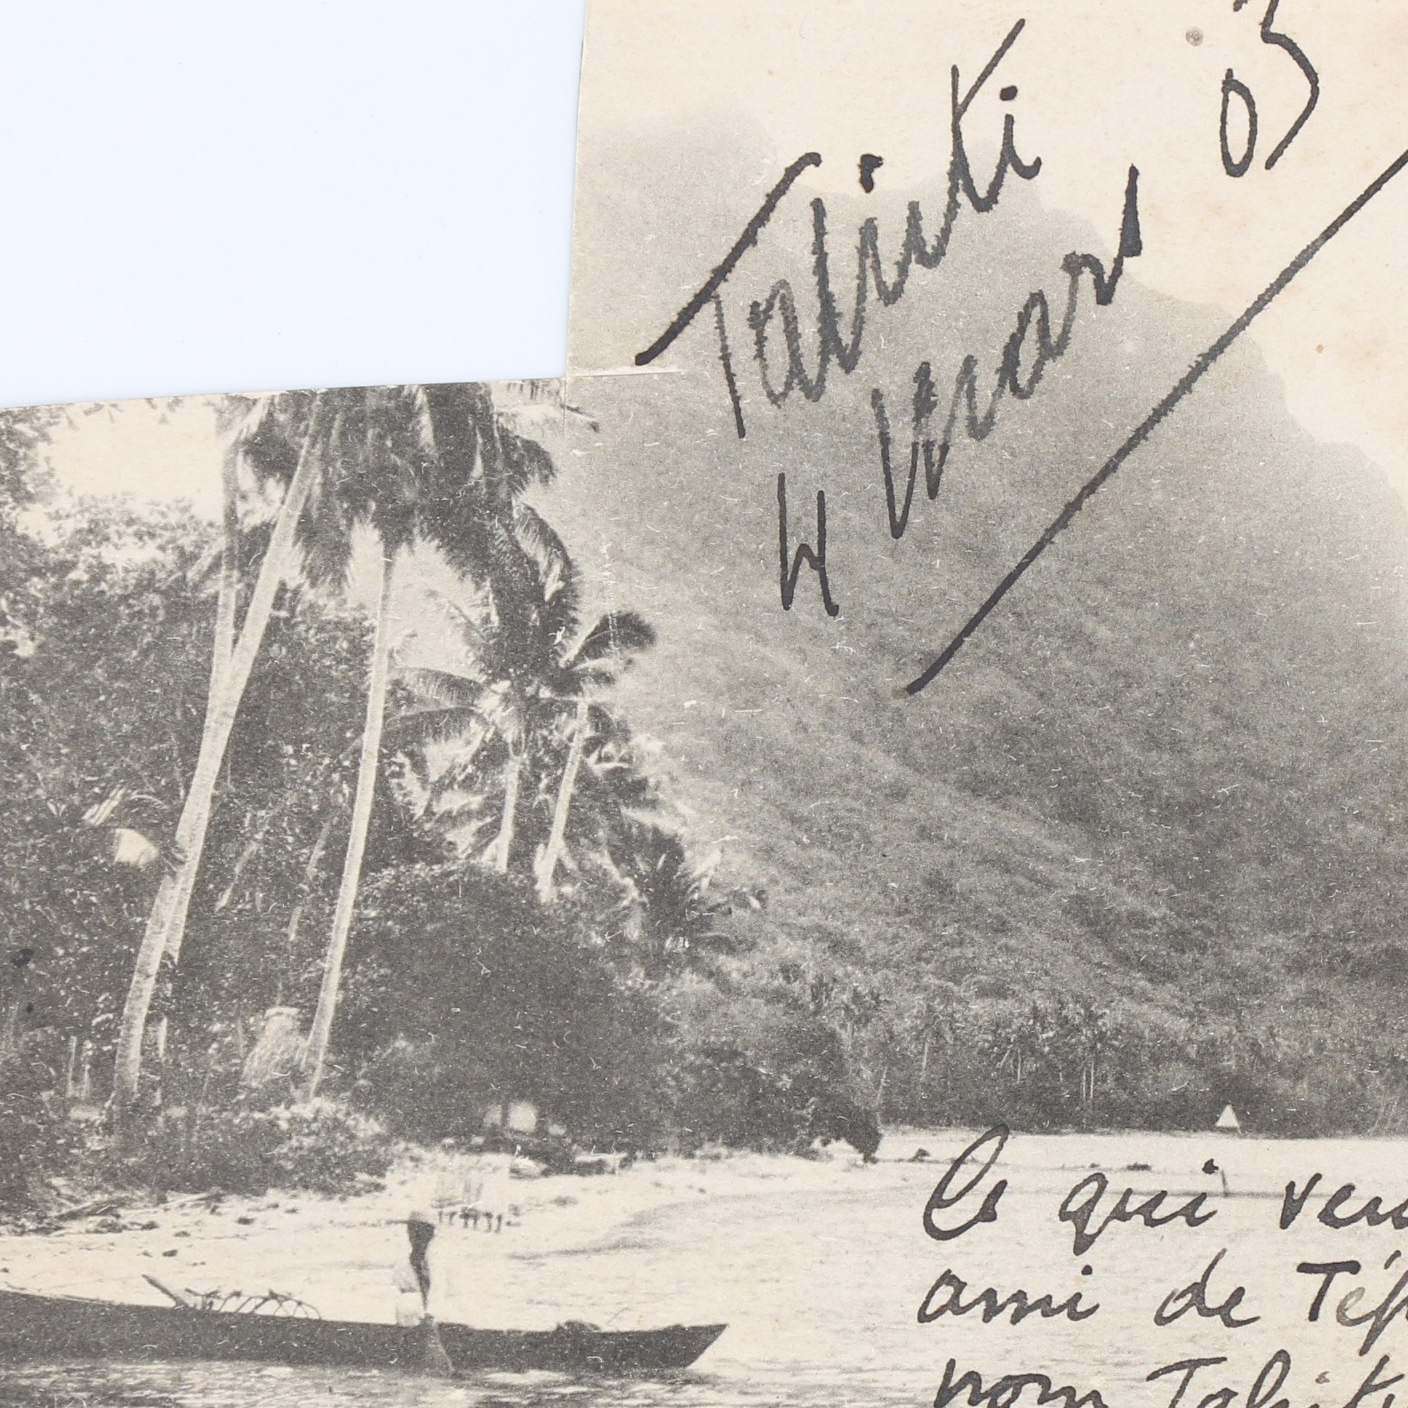 Tahiti
4 Mars 03
Ce qui veu
ami de Tép
nom Tahiti